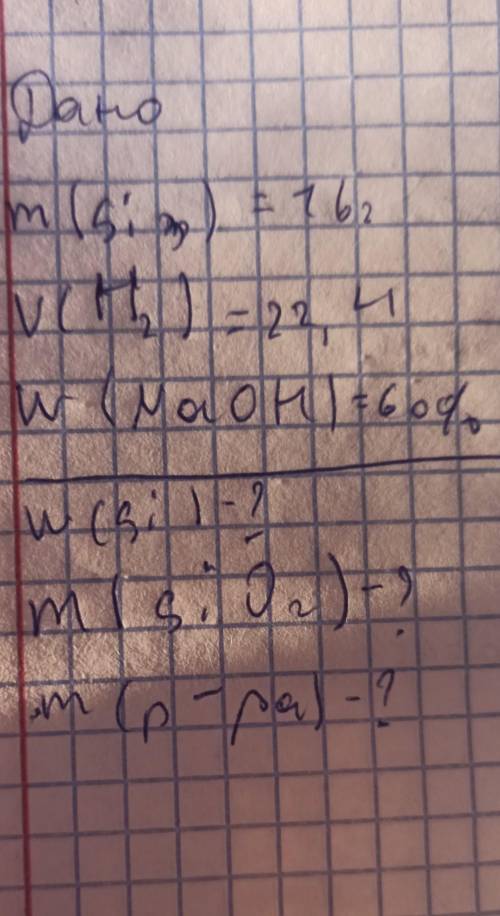 Дано
m(Si ) = 16г
V(H₂) = 22,4
W(NaOH) = 60%
W(Si) - ?
m(SiO₂) - ?
m(р-ра) - ?